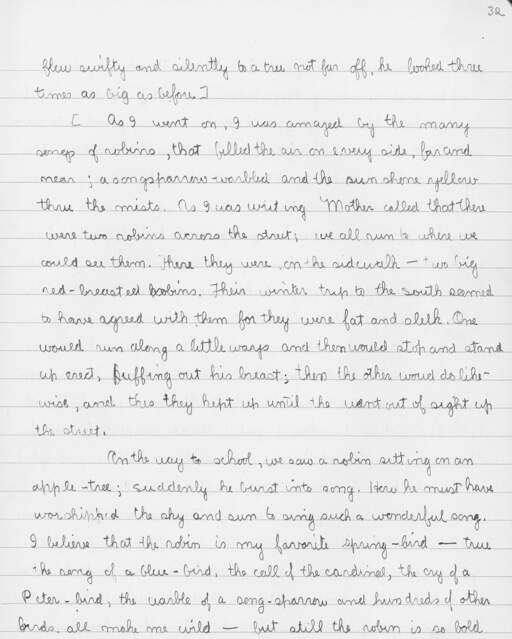 32
flew swifty and silently to a tree not far off, he looked three
times as big as before]
[ As I went on, I was amazed by the many
songs of robins, that filled the air on every side, far and
near; a songsparrow warbled and the sun shone yellow
thru the mists. As I was writing Mother called that there
were two robins across the street; we all run to where we
could see them. There they were, on the sidewalk — two big
red-breasted robins. Their winter trip to the south seemed
to have agreed with them for they were fat and sleek. One
would run along a little ways and then would stop and stand
up erect, puffing out his breast; then the other woud do like-
wise, and this they kept up until the went out of sight up
the street.
On the way to school, we saw a robin sitting on an
apple-tree; suddenly he burst into song. How he must have
worshipped the sky and sun to sing such a wonderful song.
I believe that the robin is my favorite spring-bird — true
the song of a blue-bird, the call of the cardinal, the cry of a
Peter-bird, the warble of a song-sparrow and hundreds of other
birds, all make me wild — but still the robin is so bold